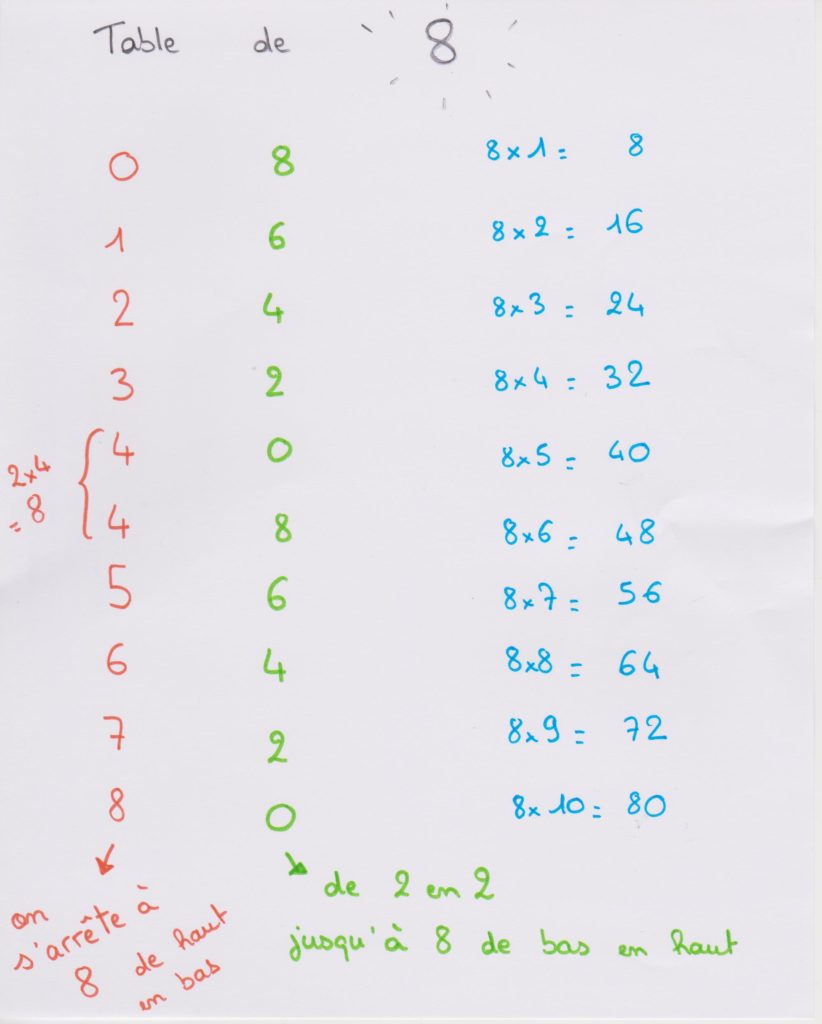 Table de 8
0 8 8 x 1 = 8
1 6 8 x 2 = 16
2 4 8 x 3 = 24
3 2 8 x 4 = 32
2x4 { 4 0 8 x 5 = 40
= 8 4 8 8 x 6 = 48
5 6 8 x 7 = 56
6 4 8 x 8 = 64
7 2 8 x 9 = 72
8 0 8 x 10 = 80
on
s'arrête à
8 de haut
en bas
de 2 en 2
jusqu'à 8 de bas en haut